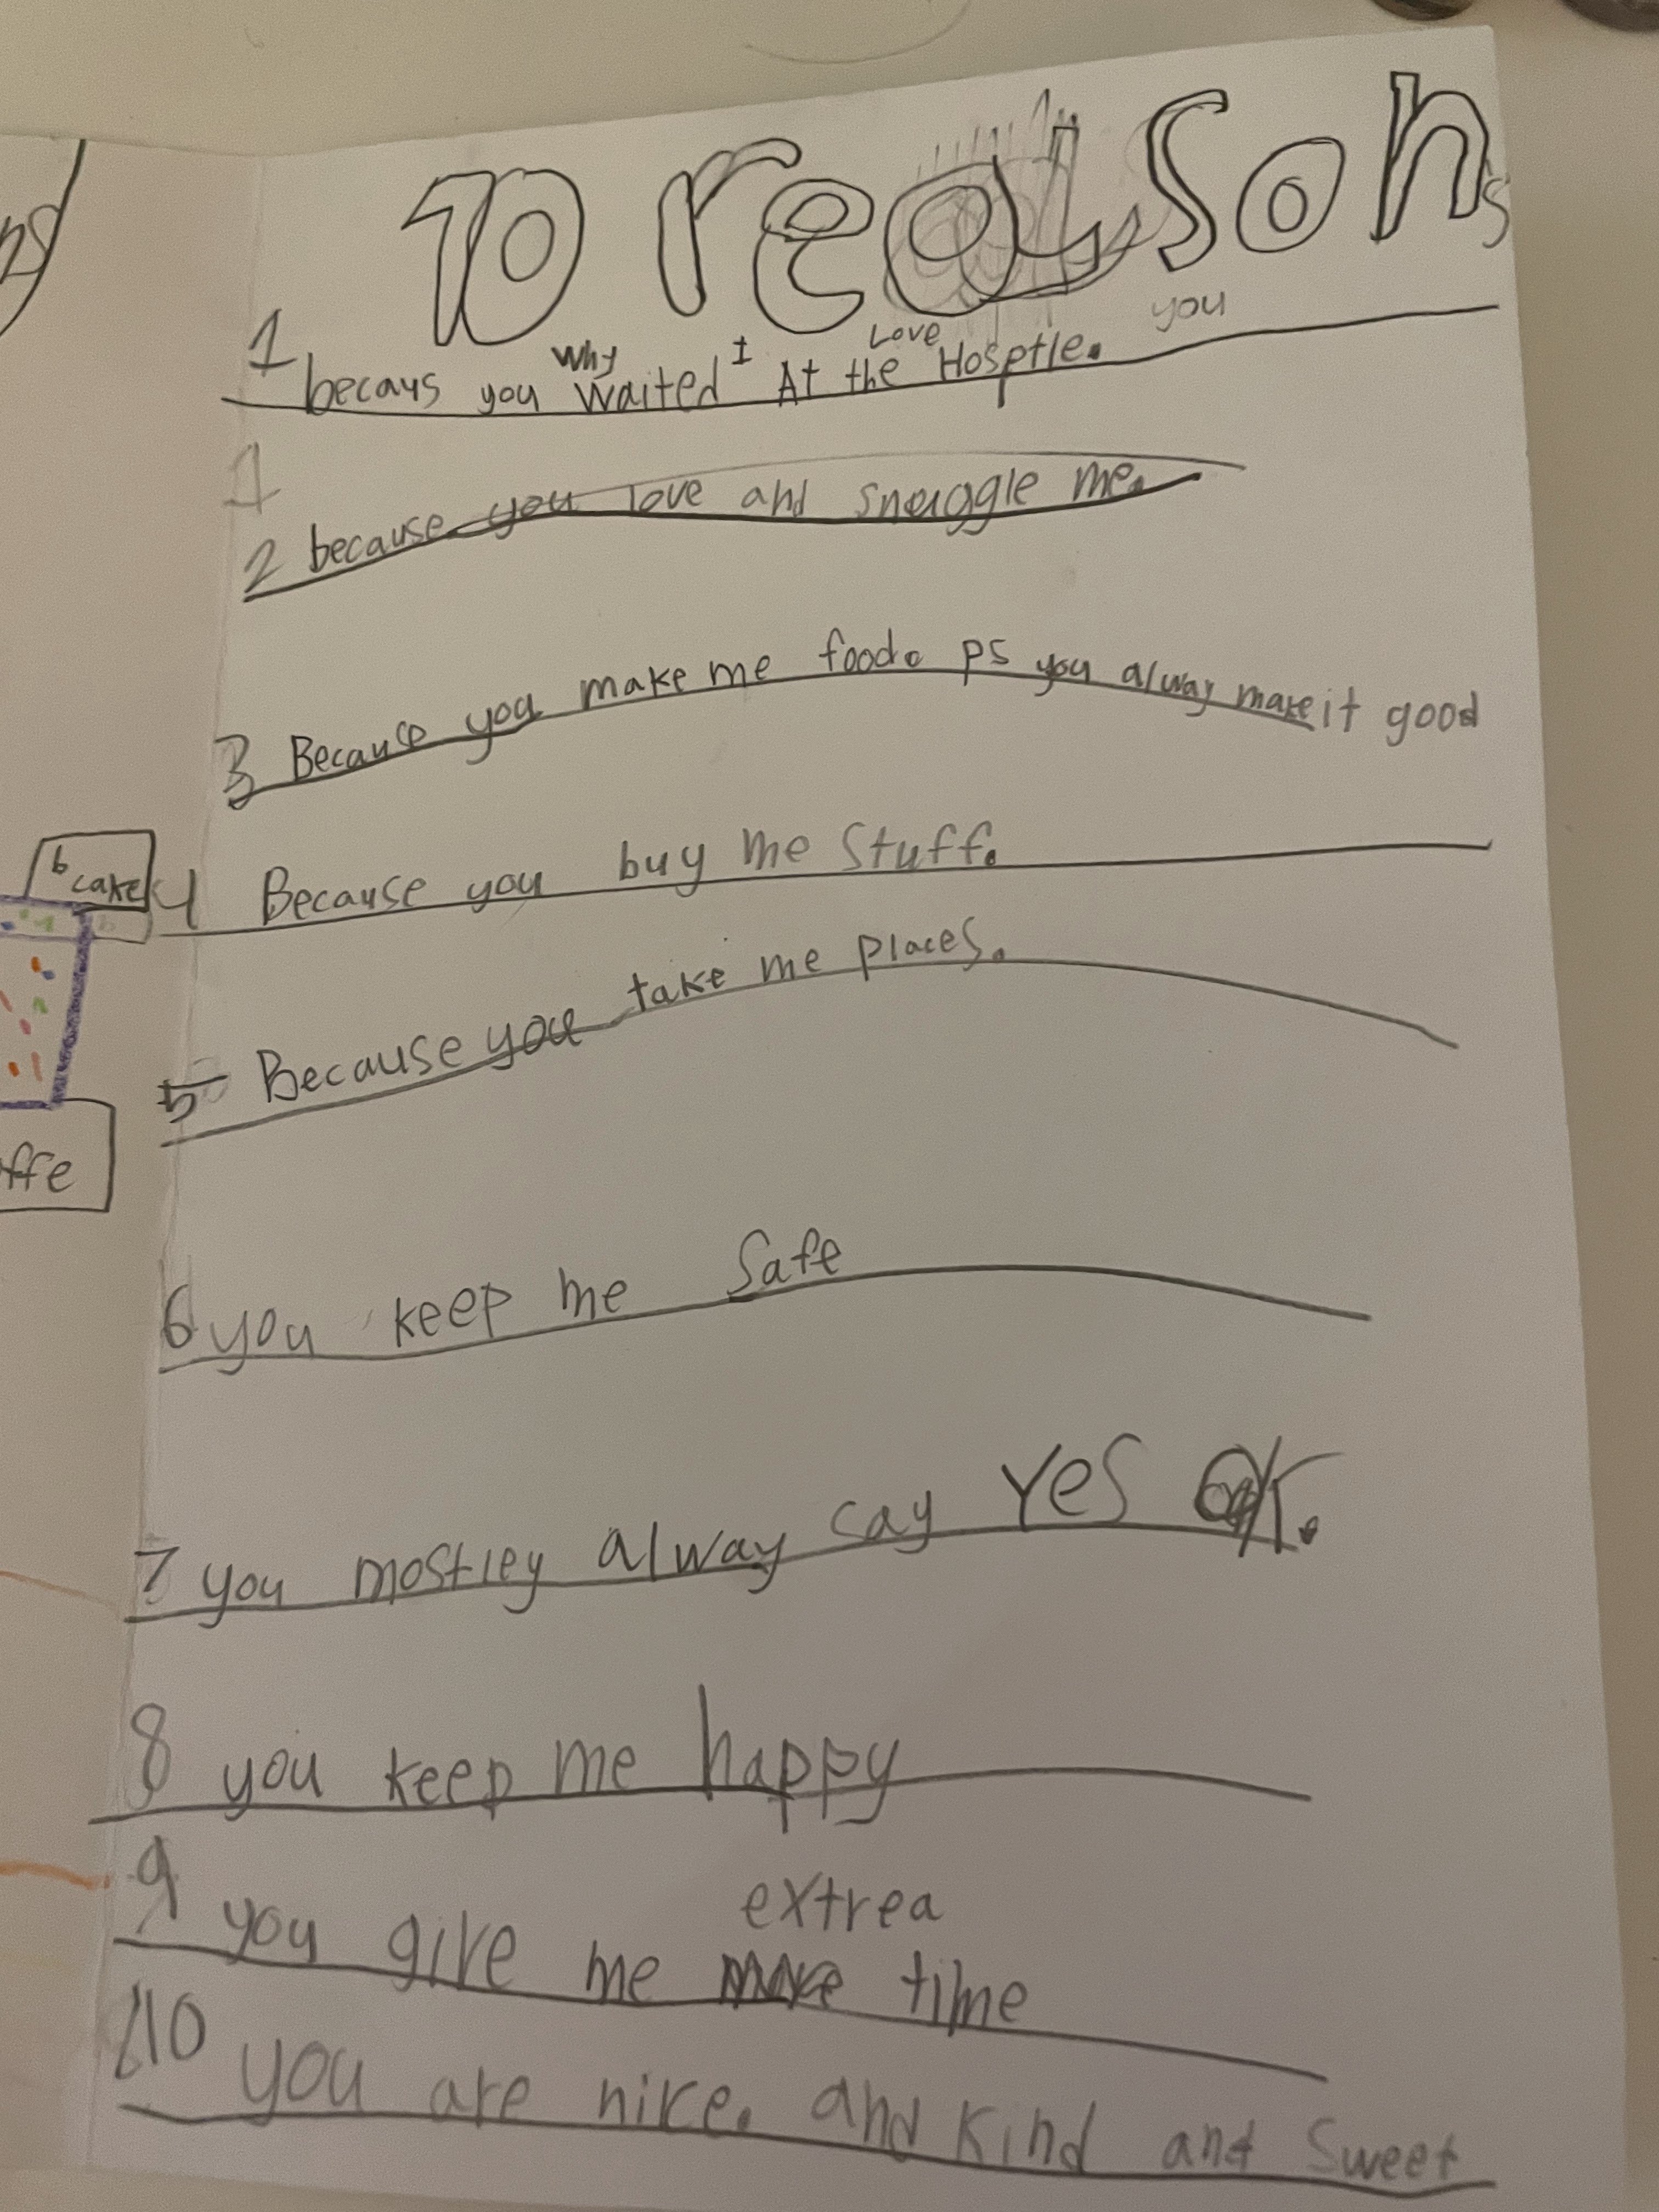 10 reasons
Why I Love you
1 becays you waited At the Hosptle.
1
2 because you love and snuggle me.
3 Because you make me food. ps you alway make it good
4 Because you buy me stuff.
5 Because you take me places.
6 you keep me Safe
7 you mostley alway say Yes OK.
8 you keep me happy
9 you give me extrea time
10 you are nice. and kind and Sweet
cake
ffe